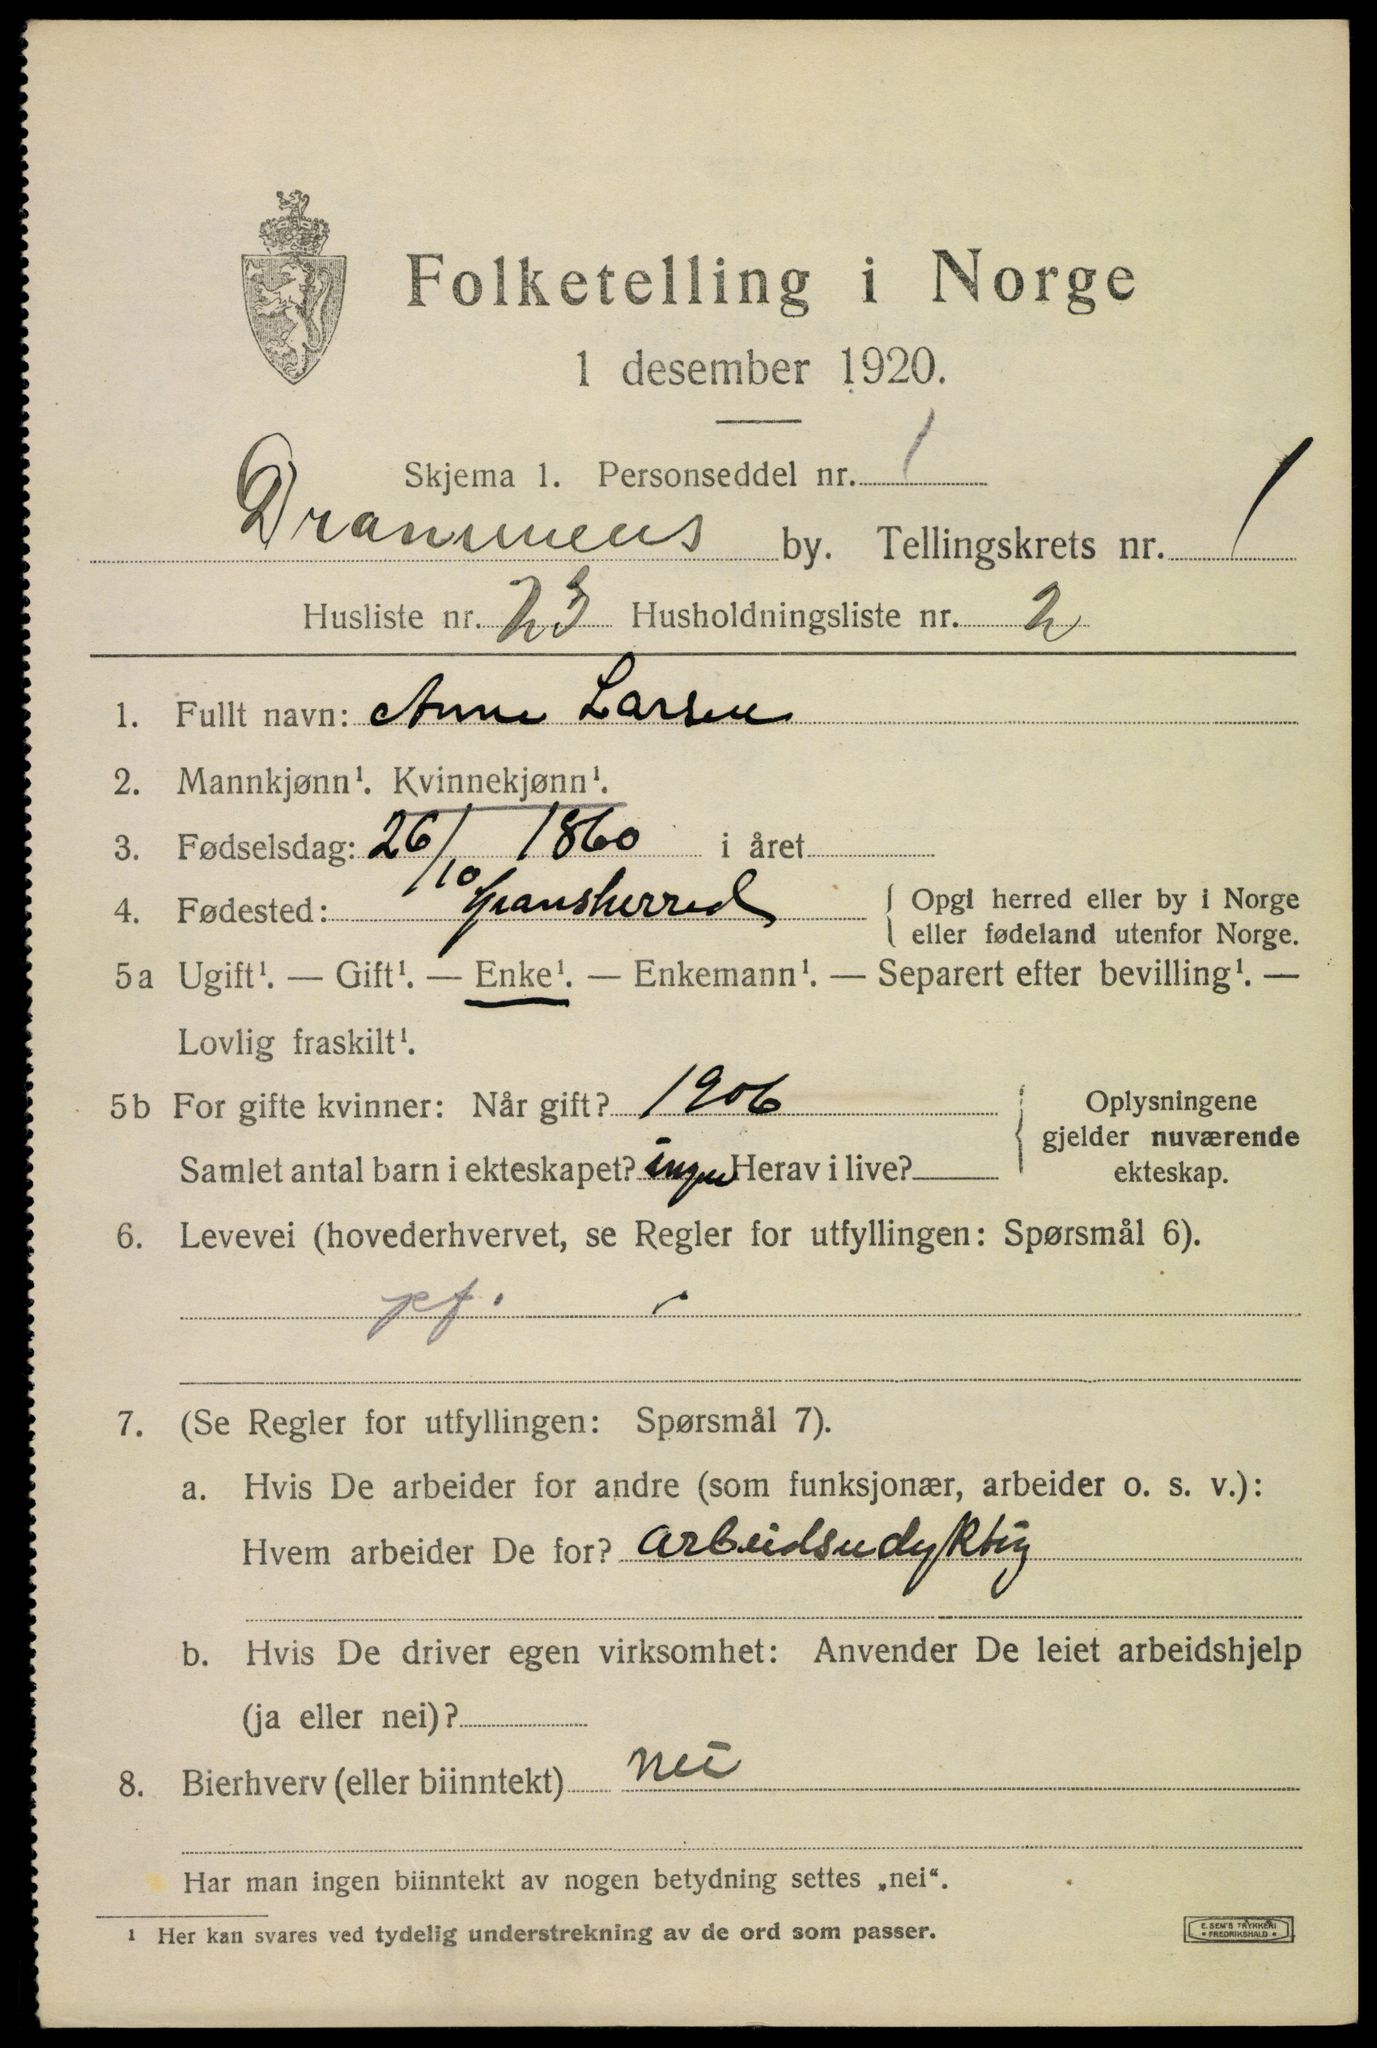 Folketelling i Norge
1 desember 1920.
Skjema 1. Personseddel nr. 1
Drammens by. Tellingskrets nr. 1
Husliste nr. 23 Husholdningsliste nr. 2
1. Fullt navn: Anne Larsen
2. Mannkjønn¹. Kvinnekjønn¹.
3. Fødselsdag: 26/10 1860 i året
4. Fødested: Gransherred { Opgi herred eller by i Norge
eller fødeland utenfor Norge.
5a Ugift¹. — Gift¹. — Enke¹. — Enkemann¹. — Separert efter bevilling¹. —
Lovlig fraskilt¹.
5b For gifte kvinner: Når gift? 1906 { Oplysningene
gjelder nuværende
Samlet antal barn i ekteskapet? ingen Herav i live?
ekteskap.
6. Levevei (hovederhvervet, se Regler for utfyllingen: Spørsmål 6).
pf.
7. (Se Regler for utfyllingen: Spørsmål 7).
a. Hvis De arbeider for andre (som funksjonær, arbeider o. s. v.):
Hvem arbeider De for? arbeidsudyktig
b. Hvis De driver egen virksomhet: Anvender De leiet arbeidshjelp
(ja eller nei)?
8. Bierhverv (eller biinntekt) nei
Har man ingen biinntekt av nogen betydning settes „nei“.
¹ Her kan svares ved tydelig understrekning av de ord som passer.
E. SEM'S TRYKKERI
• FREDRIKSHALD •